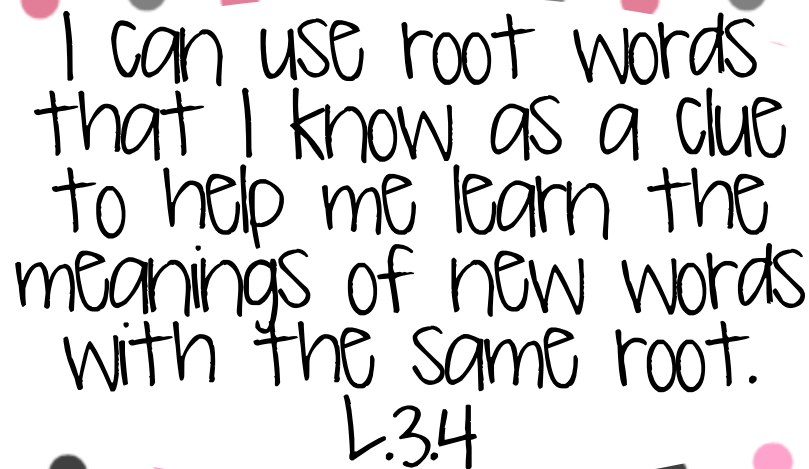 I can use root words
that I know as a clue
to help me learn the
meanings of new words
with the same root.
L.3.4